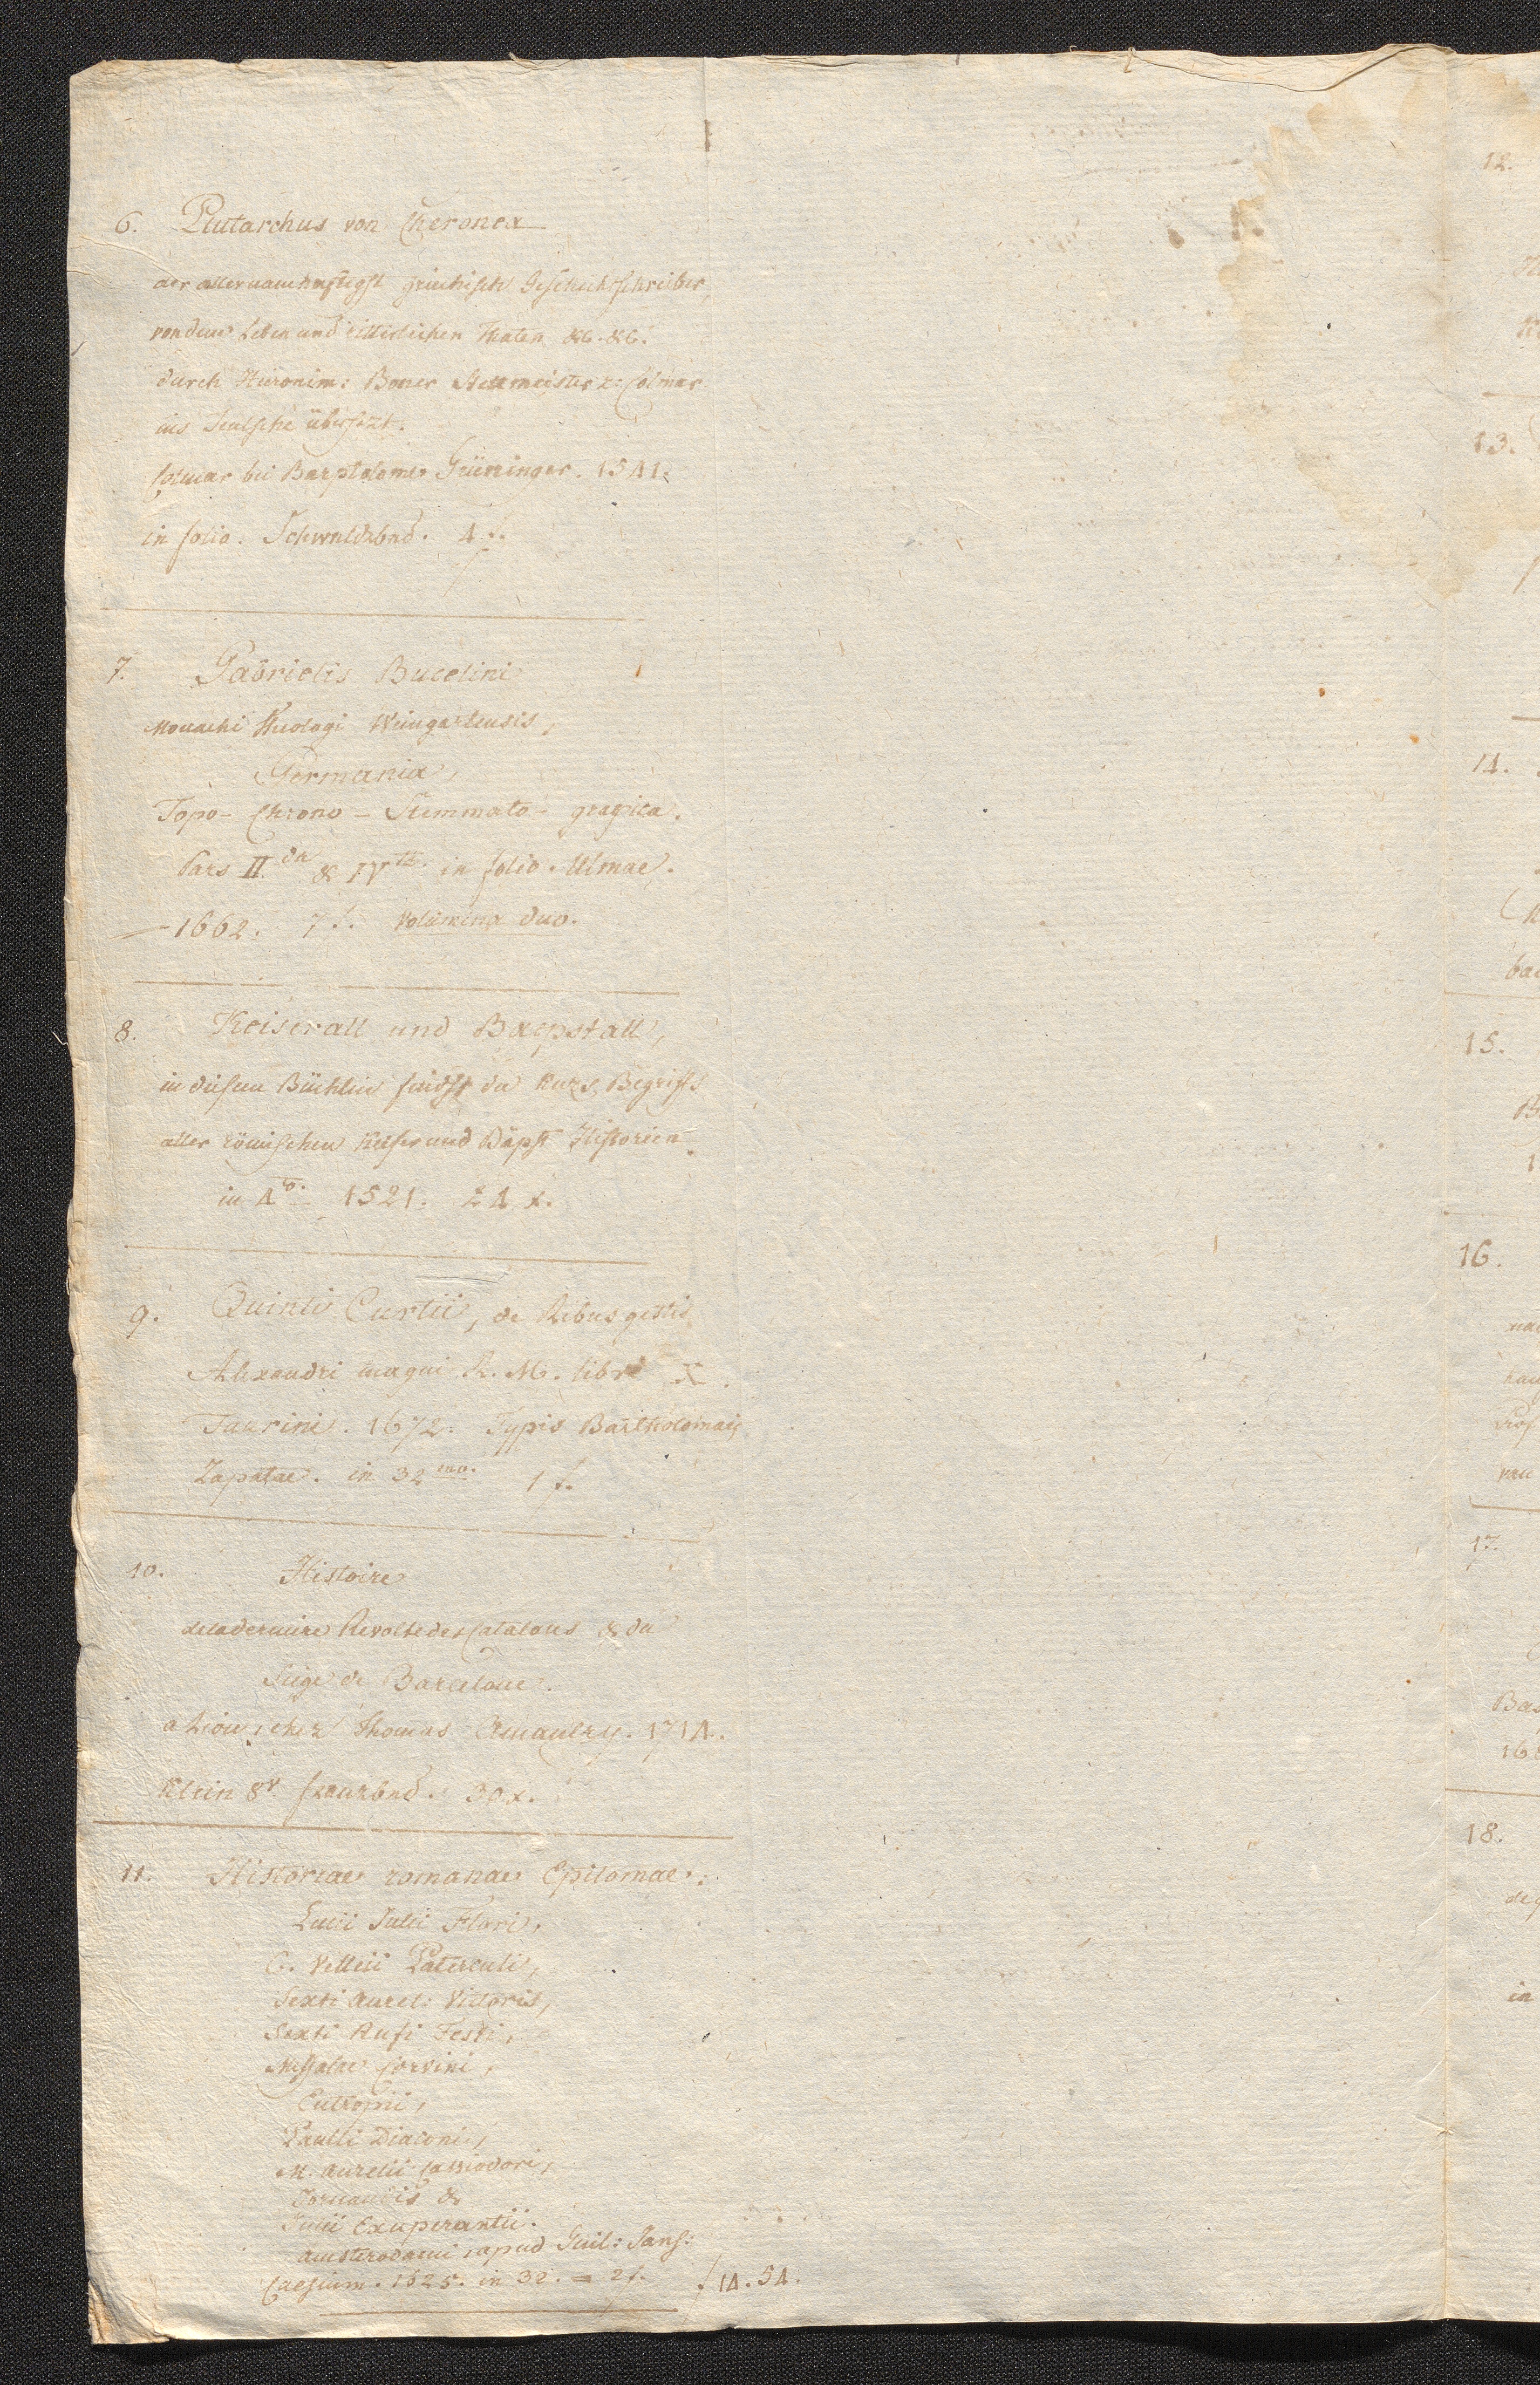 6. Plutarchus von Cheronea
der allernamhaftigst griechisch Geschichtschreiber,
von dem Leben und ritterlichen Thaten &c. &c.
durch Hieronim: Boner Stettmeister z: Colmar
ins Teutsche übersezt.
Colmar bei Barptolomeo Grüninger. 1541.
in folio. Schwnldrbnd. 4 f.
7. Gabrielis Bucelini
Monachi Theologi Weingartensis,
Germania,
Topo- Chrono- Stemmato- grapica.
Pars II.da & IVta. in folio. Ulmae.
1662. 7 f. Volumina duo.
8. Keiserall und Baepstall,
in diesem Büchlin findst du kurz Begriffs
aller römischen Keiser und Bäpst Historien
in 4to. 1521. 24 x.
9. Quinti Curtii, de Rebus gestis
Alexandri magni R. M. libri X.
Taurini. 1672. Typis Bartholomaei
Zapatae. in 32mo. 1 f.
10. Histoire
de la derniere Revolte des Catalans & du
Siege de Barcelone.
a Lion, chez Thomas Amaulry. 1714.
Klein 8v. franzbnd. 30 x.
11. Historiae romanae Epitomae:
Lucii Julii Flori,
C. Velleii Paterculi,
Sexti Aurel: Victoris,
Sexti Rufi Festi,
Messalae Corvini,
Eutropii,
Paulli Diaconi,
M. Aurelii Cassiodori,
Jornandis &
Julii Exuperantii.
Amsterodami, apud Guil: Jans:
Caesium. 1625. in 32. = 2 f. f 14. 54.
12.
13.
14.
15.
16.
17.
18.
in